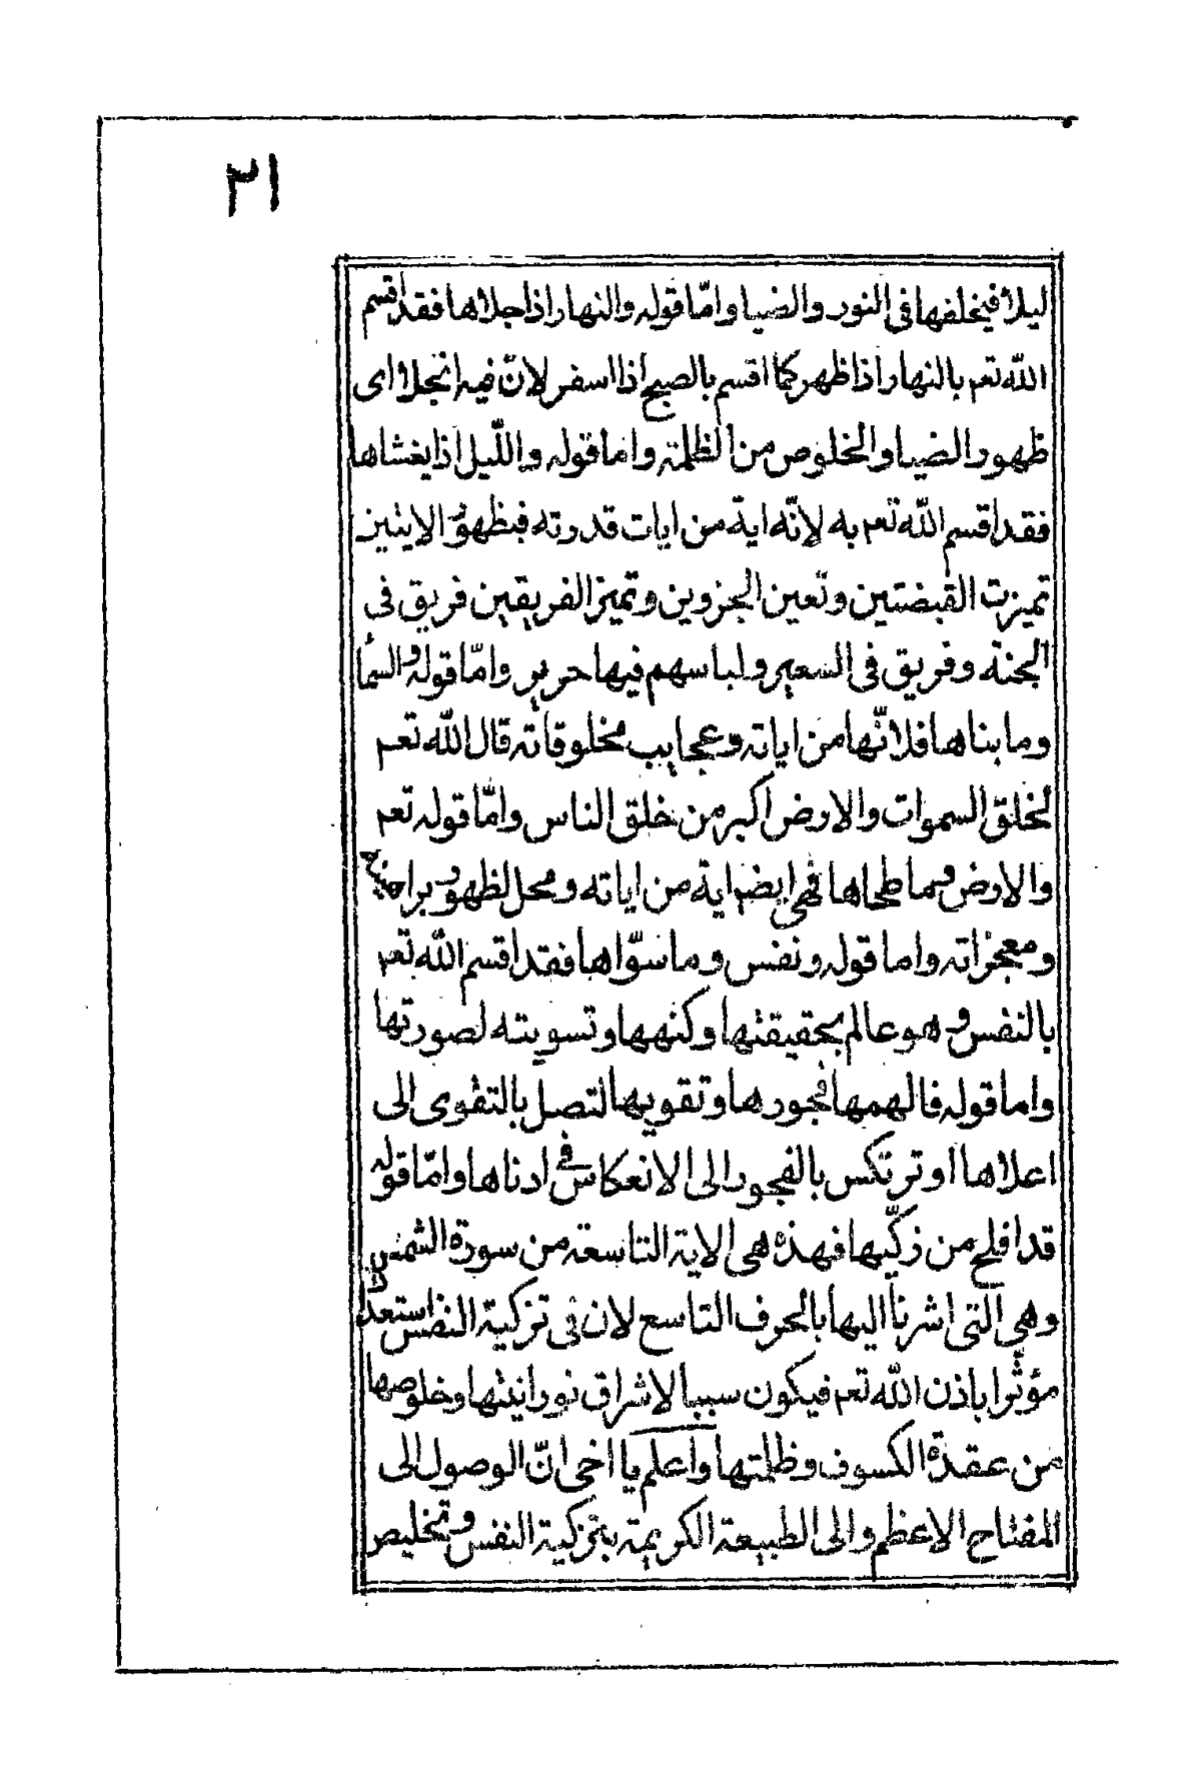 ٣١
ليلا فيخلفها فى النور والضيا وامّا قوله والنهار اذا جلاها فقد اقسم
اللّه تعم بالنهار اذا ظهر كما اقسم بالصبح اذا اسفر لانّ فيه انجلاء اى
ظهور الضيا والخلوص من الظلمة واما قوله واللّيل اذا يغشاها
فقد اقسم اللّه تعم به لانّه اية من ايات قدرته فبظهور الايتين
تميزت القبضتين وتعين الجزوين وتميز الفريقين فريق فى
الجنة وفريق فى السعير ولباسهم فيها حرير وامّا قوله والسما
وما بناها فلانّها من اياته وعجايب مخلوقاته قال اللّه تعم
لخلق السموات والارض اكبر من خلق الناس وامّا قوله تعم
والارض وما طحاها فهى ايضم اية من اياته ومحل لظهور براهينه
ومعجزاته واما قوله ونفس وما سوّاها فقد اقسم اللّه تعم
بالنفس وهو عالم بحقيقتها وكنهها وتسويته لصورتها
واما قوله فالهمها فجورها وتقويها لتصل بالتقوى الى
اعلاها او ترتكس بالفجور الى الانعكاس فى ادناها وامّا قوله
قد افلح من زكّيها فهذه هى الاية التاسعة من سورة الشمس
وهى التى اشرنا اليها بالحرف التاسع لان فى تزكية النفس استعدادا
مؤثّرا باذن اللّه تعم فيكون سببا لاشراق نورانيتها وخلوصها
من عقدة الكسوف وظلمتها واعلم يا اخى انّ الوصول الى
المفتاح الاعظم والى الطبيعة الكريمة بتزكية النفس وتخليص